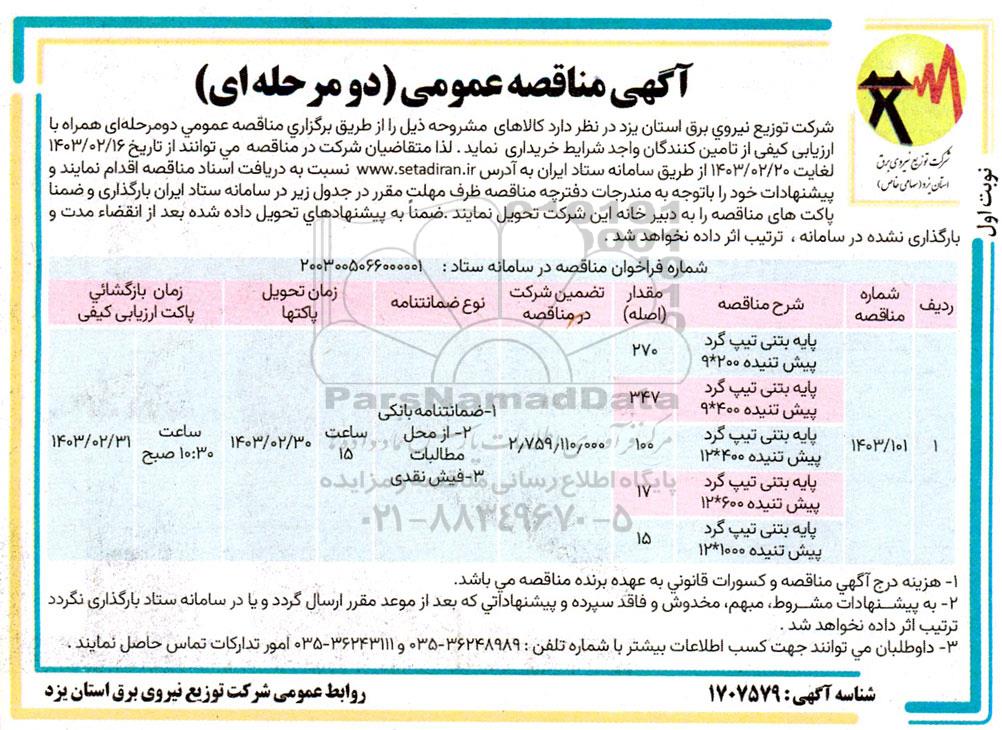 آگهی مناقصه عمومی (دو مرحله ای)
شرکت توزیع نیروی برق
استان یزد (سهامی خاص)
نوبت اول
شرکت توزیع نیروي برق استان یزد در نظر دارد کالاهای مشروحه ذیل را از طریق برگزاري مناقصه عمومي دومرحله‌ای همراه با
ارزیابی کیفی از تامین کنندگان واجد شرایط خریداری نماید . لذا متقاضیان شرکت در مناقصه می توانند از تاریخ ۱۴۰۳/۰۲/۱۶
لغایت ۱۴۰۳/۰۲/۲۰ از طریق سامانه ستاد ایران به آدرس www.setadiran.ir نسبت به دریافت اسناد مناقصه اقدام نمایند و
پیشنهادات خود را باتوجه به مندرجات دفترچه مناقصه ظرف مهلت مقرر در جدول زیر در سامانه ستاد ایران بارگذاری و ضمنا
پاکت های مناقصه را به دبیر خانه این شرکت تحویل نمایند .ضمناً به پیشنهادهاي تحویل داده شده بعد از انقضاء مدت و
بارگذاری نشده در سامانه ، ترتیب اثر داده نخواهد شد .
شماره فراخوان مناقصه در سامانه ستاد : ۲۰۰۳۰۰۵۰۶۶۰۰۰۰۰۱
ردیف | شماره مناقصه | شرح مناقصه | مقدار (اصله) | تضمین شرکت در مناقصه | نوع ضمانتنامه | زمان تحویل پاکتها | زمان بازگشائي پاکت ارزیابی کیفی
۱ | ۱۴۰۳/۱۰۱ | پایه بتنی تیپ گرد پیش تنیده ۲۰۰*۹ | ۲۷۰
پایه بتنی تیپ گرد پیش تنیده ۴۰۰*۹ | ۳۴۷
پایه بتنی تیپ گرد پیش تنیده ۴۰۰*۱۲ | ۱۰۰
پایه بتنی تیپ گرد پیش تنیده ۶۰۰*۱۲ | ۱۷
پایه بتنی تیپ گرد پیش تنیده ۱۰۰۰*۱۲ | ۱۵
۲٫۷۵۹٫۱۱۰٫۰۰۰
۱-ضمانتنامه بانکی
۲- از محل
مطالبات
۳-فیش نقدی
ساعت ۱۵
۱۴۰۳/۰۲/۳۰
ساعت ۱۰:۳۰ صبح
۱۴۰۳/۰۲/۳۱
ParsNamadData
پایگاه اطلاع رسانی مناقصه و مزایده
۰۲۱-۸۸۳۴۹۶۷۰-۵
۱- هزینه درج آگهي مناقصه و کسورات قانوني به عهده برنده مناقصه مي باشد.
۲- به پیشــنهادات مشــروط، مبهم، مخدوش و فاقد سپرده و پیشنهاداتي که بعد از موعد مقرر ارسال گردد و یا در سامانه ستاد بارگذاری نگردد
ترتیب اثر داده نخواهد شد .
۳- داوطلبان مي توانند جهت کسب اطلاعات بیشتر با شماره تلفن : ۳۶۲۴۸۹۸۹-۰۳۵ و ۳۶۲۴۳۱۱۱-۰۳۵ امور تدارکات تماس حاصل نمایند .
شناسه آگهی: ۱۷۰۷۵۷۹
روابط عمومی شرکت توزیع نیروی برق استان یزد